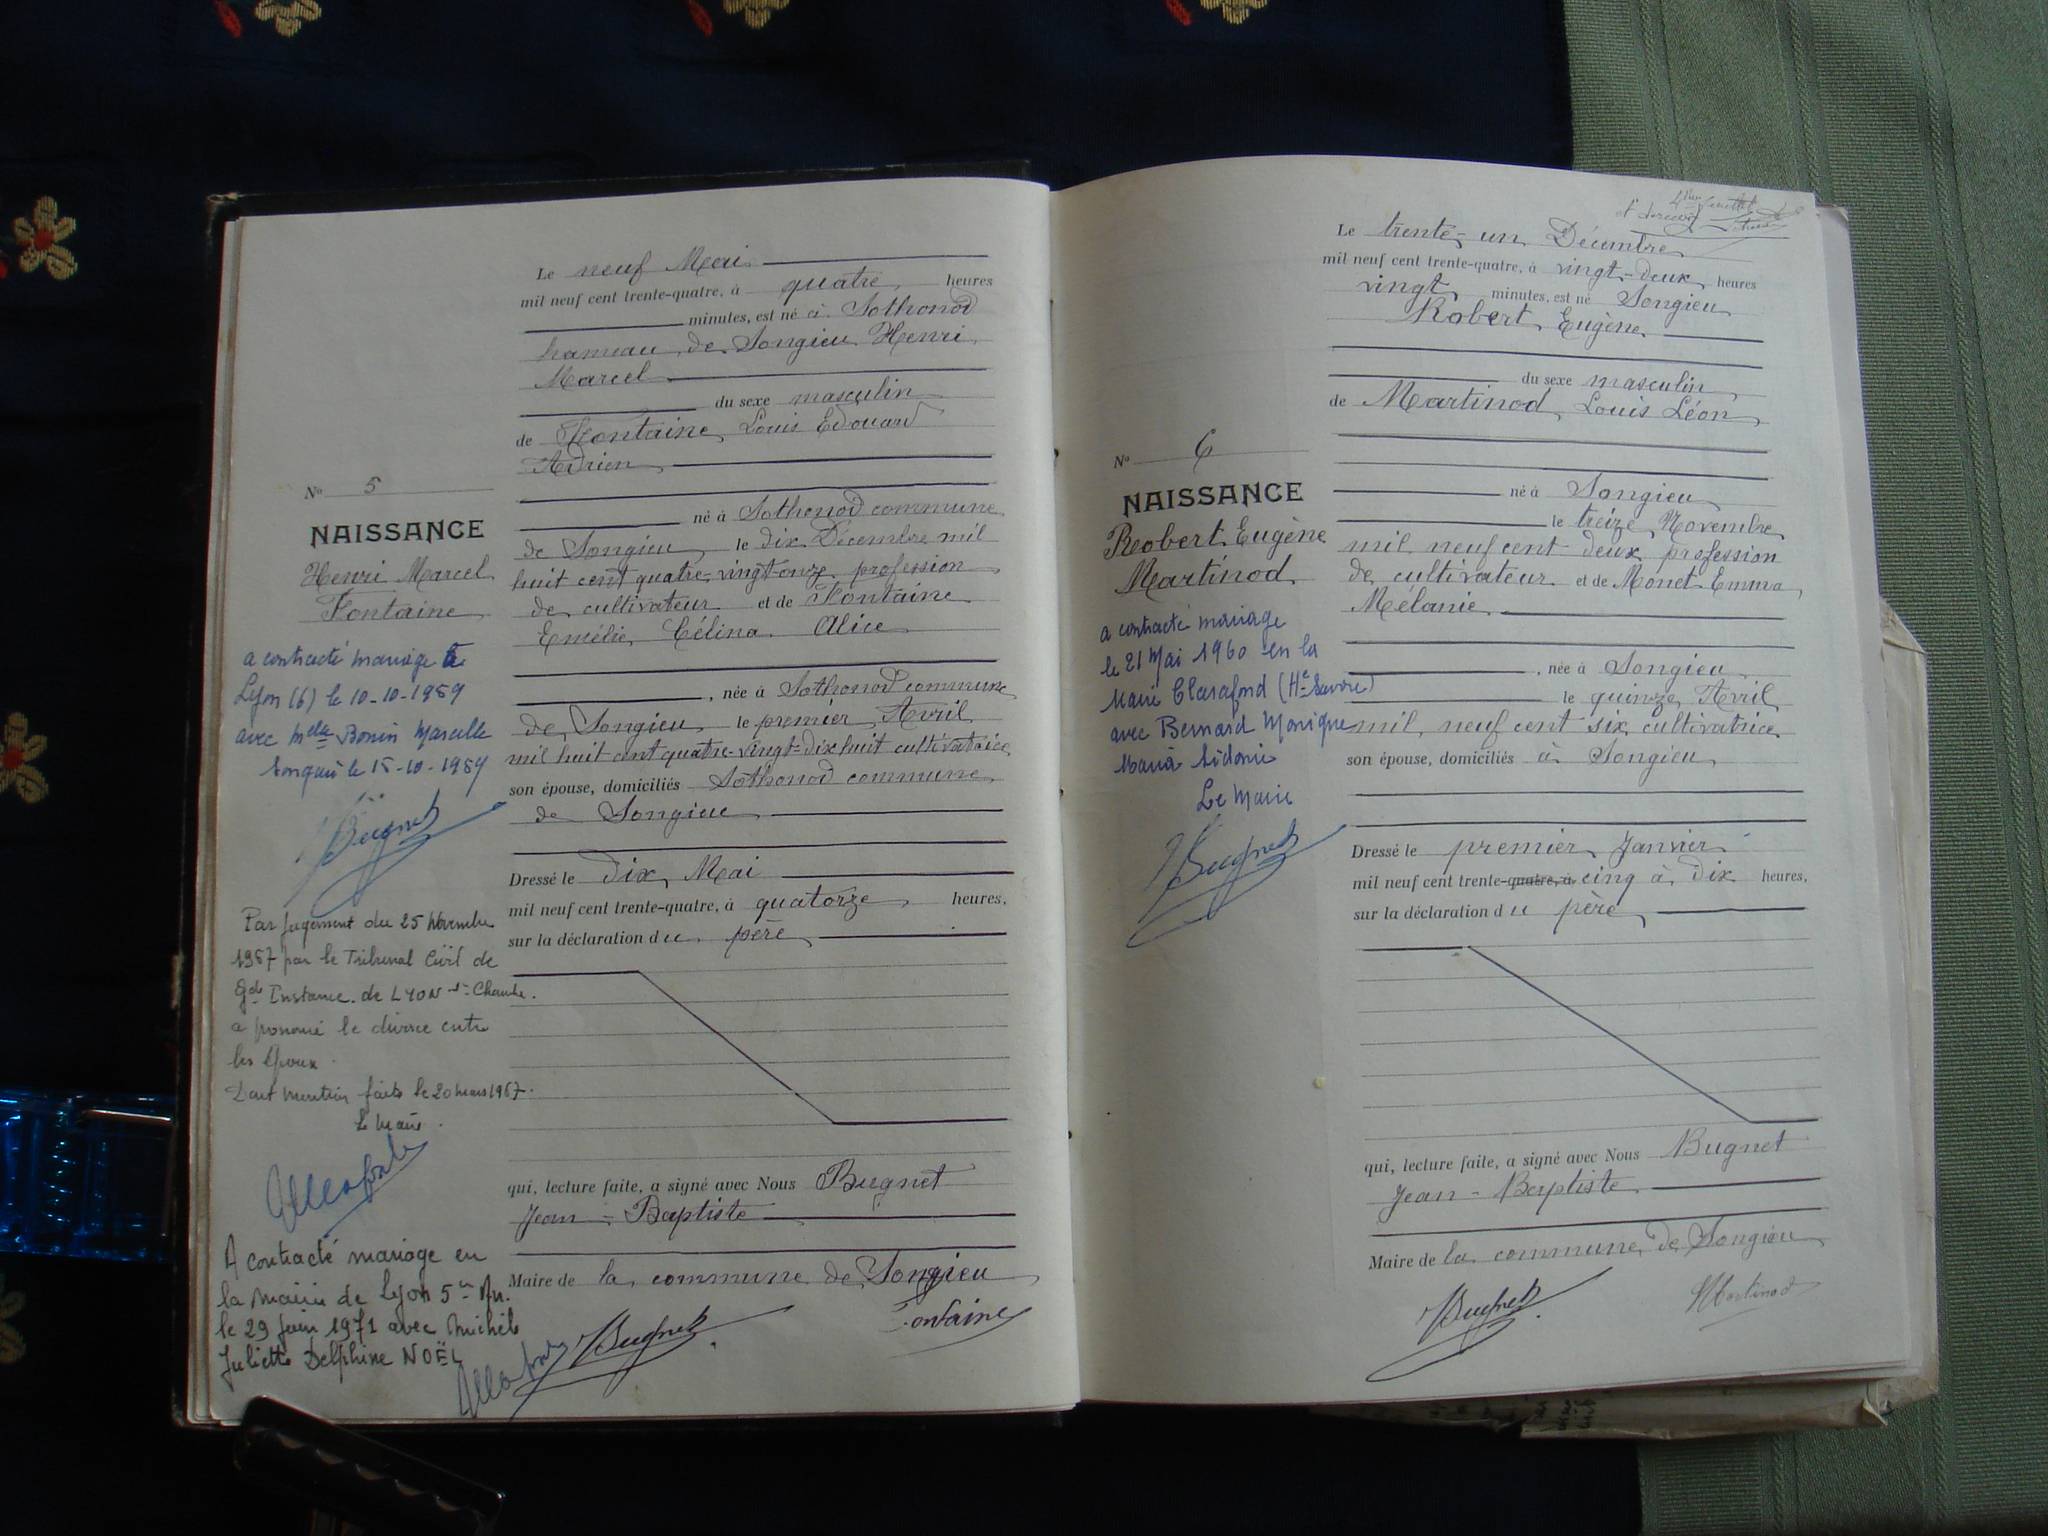 Le neuf Mai
mil neuf cent trente-quatre, à quatre heures
minutes, est né à Sothonod
hameau de Songieu Henri
Marcel
du sexe masculin
de Fontaine Louis Edouard
Adrien
né à Sothonod commune
de Songieu le dix Décembre mil
huit cent quatre-vingt-onze profession
de cultivateur et de Fontaine
Emélie Célina Alice
, née à Sothonod commune
de Songieu le premier Avril
mil huit cent quatre-vingt-dix huit cultivatrice
son épouse, domiciliés Sothonod commune
de Songieu
Dressé le dix Mai
mil neuf cent trente-quatre, à quatorze heures,
sur la déclaration du père
qui, lecture faite, a signé avec Nous Bugnet
Jean-Baptiste
Maire de la commune de Songieu
Fontaine
Bugnet
No 5
NAISSANCE
Henri Marcel
Fontaine
a contracté mariage à
Lyon (6) le 10-10-1959
avec Melle Bonin Marcelle
Songieu le 15-10-1959
Bugnet
Par jugement du 25 Novembre
1967 par le Tribunal Civil de
Gde Instance de LYON Chambre.
a prononcé le divorce entre
les époux.
Dont mention faite le 20 mars 1967.
Le Maire.
A contracté mariage en
la mairie de Lyon 5e Arr.
le 29 juin 1971 avec Michèle
Juliette Delphine NOËL
Le trente-un Décembre
mil neuf cent trente-quatre, à vingt-deux heures
vingt minutes, est né Songieu
Robert Eugène
du sexe masculin
de Martinod Louis Léon
né à Songieu
le treize Novembre
mil neuf cent deux profession
de cultivateur et de Monet Emma
Mélanie
, née à Songieu
le quinze Avril
mil neuf cent six cultivatrice
son épouse, domiciliés à Songieu
Dressé le premier Janvier
mil neuf cent trente-quatre, à cinq à dix heures,
sur la déclaration du père
qui, lecture faite, a signé avec Nous Bugnet
Jean-Baptiste
Maire de la commune de Songieu
Bugnet
Martinod
No 6
NAISSANCE
Robert Eugène
Martinod
a contracté mariage
le 21 Mai 1960 en la
Mairie Clarafond (Hte Savoie)
avec Bernard Monique
Maria Sidonie
Le Maire
Bugnet